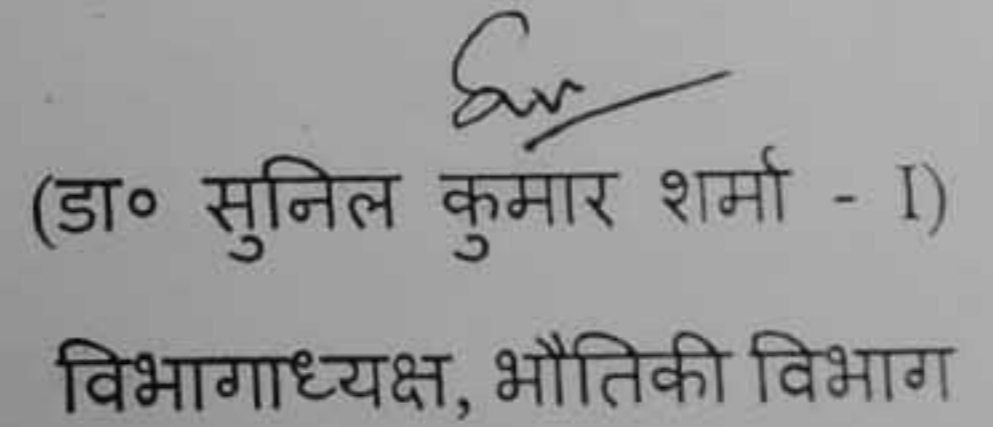 (डा० सुनिल कुमार शर्मा - I)
विभागाध्यक्ष, भौतिकी विभाग